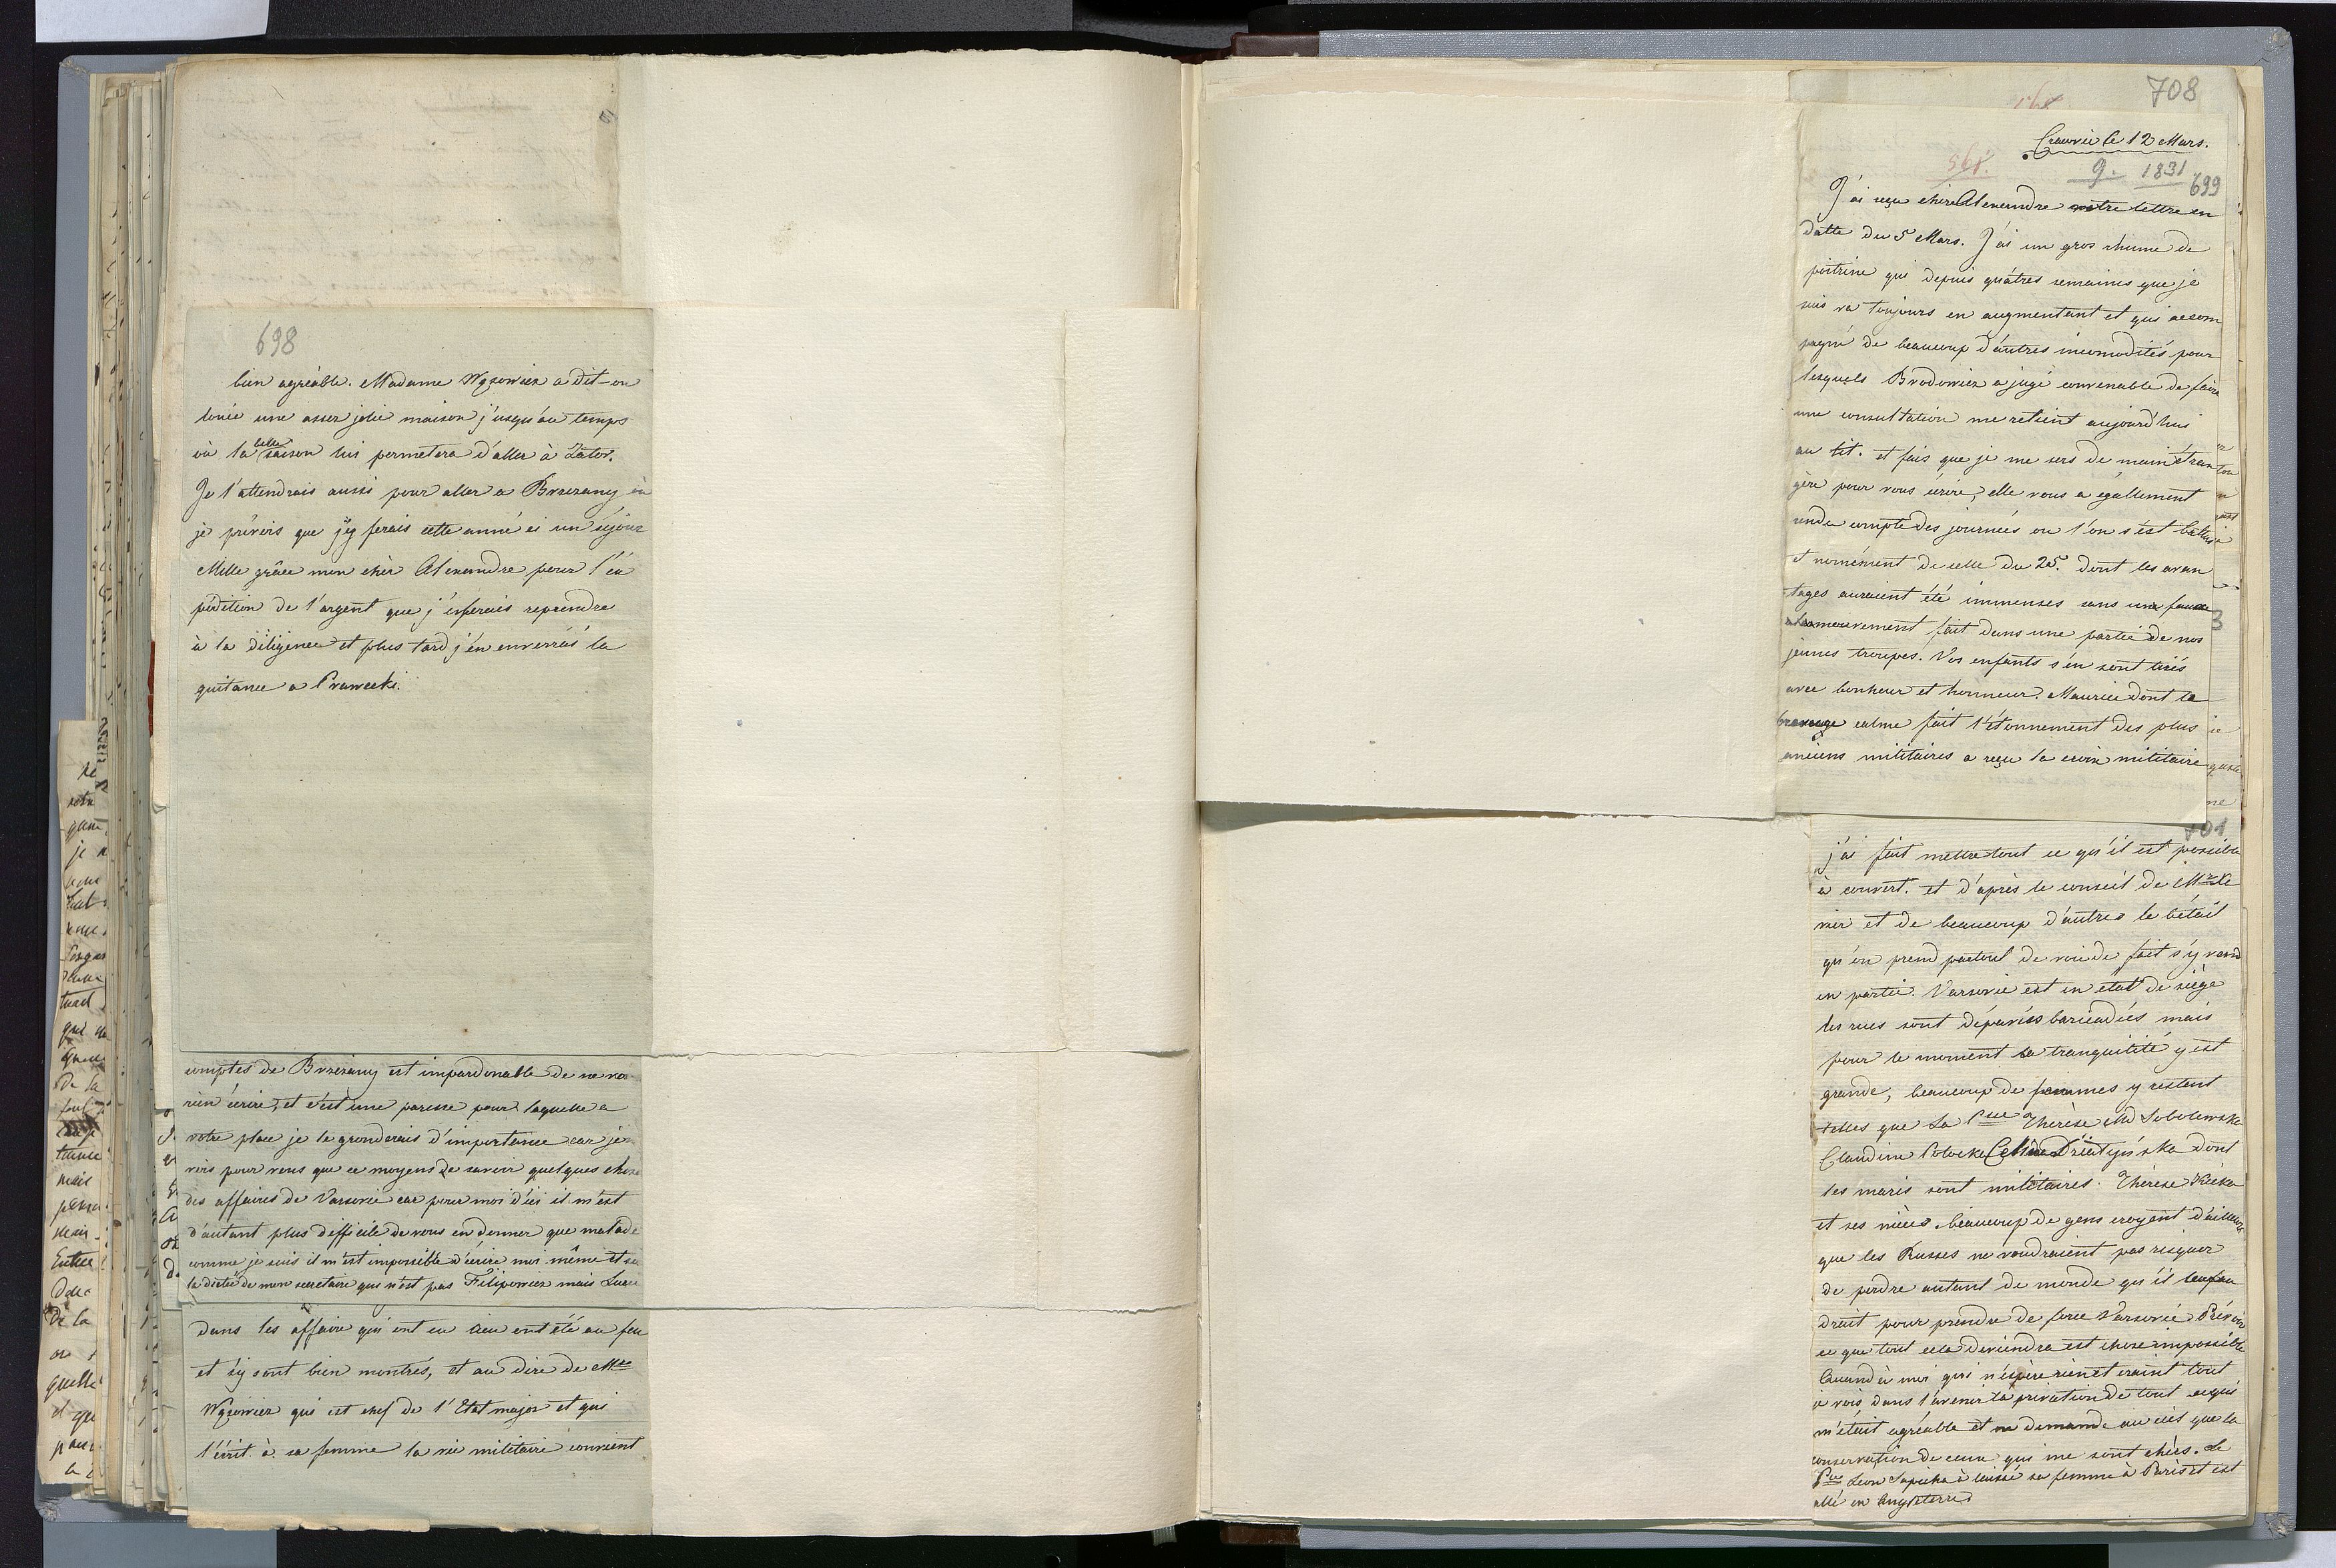 698
bien agréable. Madame Wąsowicz a dit-on
louée une asser jolie maison j'usqu'au temps
où la belle saison lui permetera d'aller à Zator.
Je l'attendrais aussi pour aller a Brzezany où
je prévois que j'ÿ ferais cette anné ei un séjour
Mille grâce mon cher Alexandre pour l'éx
pédition de l'argent que j'enferais repeindre
à la diligence et plus tard j'en enverrás la
quitance a Prawecki.
comptes de Brzezany est impardonable de ne
rien écrire, et c'est une paresse pour laquelle a
votre place je le gronderais d'importance car je
vois pour vous que ce moyens de savoir quelques chose
des affaires de Varsovie car pour moi d'ici il m'est
d'autant plus difficile de vous en donner que malade
comme je suis il m'est impossible d'écrire moi même et
la dictée de mon secretaire qui n'est pas Filipowicz mais
dans les affaire qui ont eu lieu ont été au feu
et s'y sont bien montrés, et au dire de Mr
Wąsowicz qui est chef de l'Etat major et qui
l'écrit à sa femme la vie militaire convient
708
Cracovie le 12 Mars.
561. 9. 1831 699
J'ai reçu cher Alexandre votre lettre en
datte du 5 Mars. J'ai un gros rhume de
poitrine qui depuis quátres semaines que je
suis va toujours en augmentant et qui accom
pagné de beaucoup d'autres incomodités pour
lesquels Brodowicz a jugé convenable de faire
une consultation me retient aujourd'hui
au lit. et fais que je me sers de main étran
gère pour vous écrire, elle vous a égallement
rendu compte des journées ou l'on s'est battus
et nomément de celle du 25. dont les avan
tages auraient été immenses sans une fausse
mouvement fait dans une partie de nos
jeunes troupes. Vos enfants s'en sont tirés
avec bonheur et honneur. Maurice dont la
bravoure calme fait l'étonnement des plus
anciens militaires a reçu la croix militaire
701
j'ai fait mettre tout ce qu'il est possible
à couvert. et d'après le conseil de Mr
et de beaucoup d'autres le bétail
qu'on prend partout de voie de fait s'y vend
en partie. Varsovie est en état de siège
les rues sont dépavées baricadées mais
pour le moment la tranquilité y est
grande, beaucoup de femmes y restent
telles que La Pcesse Thérèse Md Sobolewska
Claudine Potocka Célina Działyńska dont
les maris sont militaires. Thérèse Kicka
et ses nièces. beaucoup de gens croyent d'ailleurs
que les Russes ne voudraient pas risquer
de perdre autant de monde qu'il leur fau
drait pour prendre de force Varsovie. Prévoir
ce que tout cela deviendra est chose impossible
Quand à moi qui n'éspère rien et craint tout
je vois dans l'avenir la privation de tout ce qui
m'était agréable et ne demande au ciel que la
conservation de ceux qui me sont chèrs. Le
Pce Leon Sapieha à laissé sa femme à Paris et est
allé en Angleterre